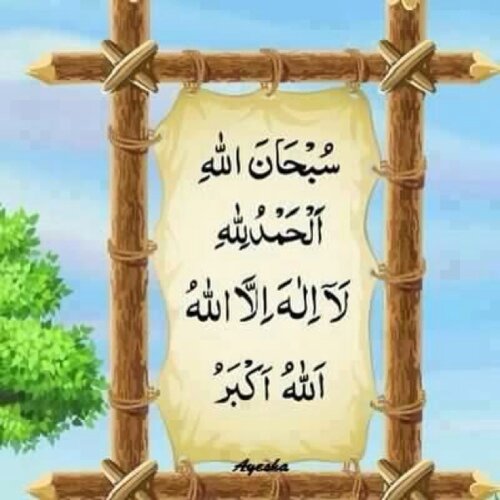 سُبْحَانَ اللهِ
اَلْحَمْدُلِلهِ
لَآ اِلٰهَ اِلَّا اللهُ
اَللهُ اَكْبَرُ
Ayesha